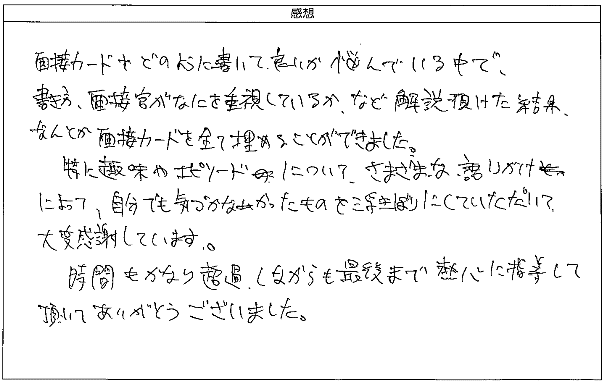 感想
面接カードをどのように書いて良いか悩んでいる中で、
書き方、面接官がなにを重視しているか、など解説頂けた結果、
なんとか面接カードを全て埋めることができました。
特に趣味やエピソードについて、さまざまな語りかけ
によって、自分でも気づかなかったものを浮きぼりにしていただいて、
大変感謝しています。
時間もかなり超過しながらも最後まで熱心に指導して
頂いてありがとうございました。